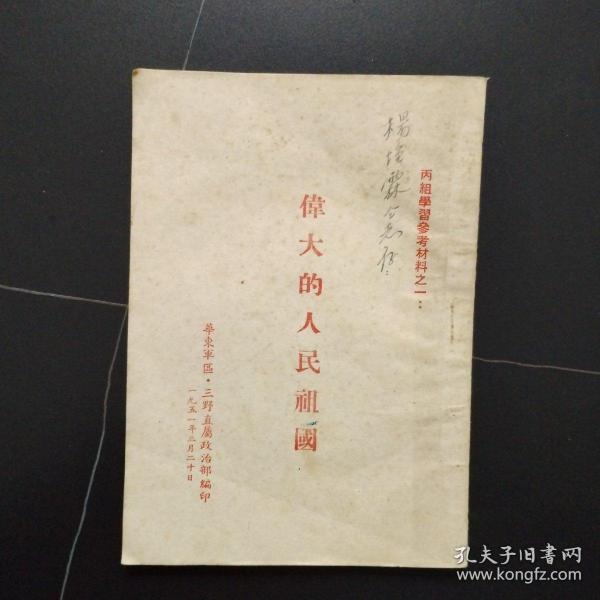 丙組學習參考材料之一：
楊
霖同志存
偉大的人民祖國
華東軍區·三野直屬政治部編印
一九五一年三月二十日
孔夫子旧書网
www.kongfz.com